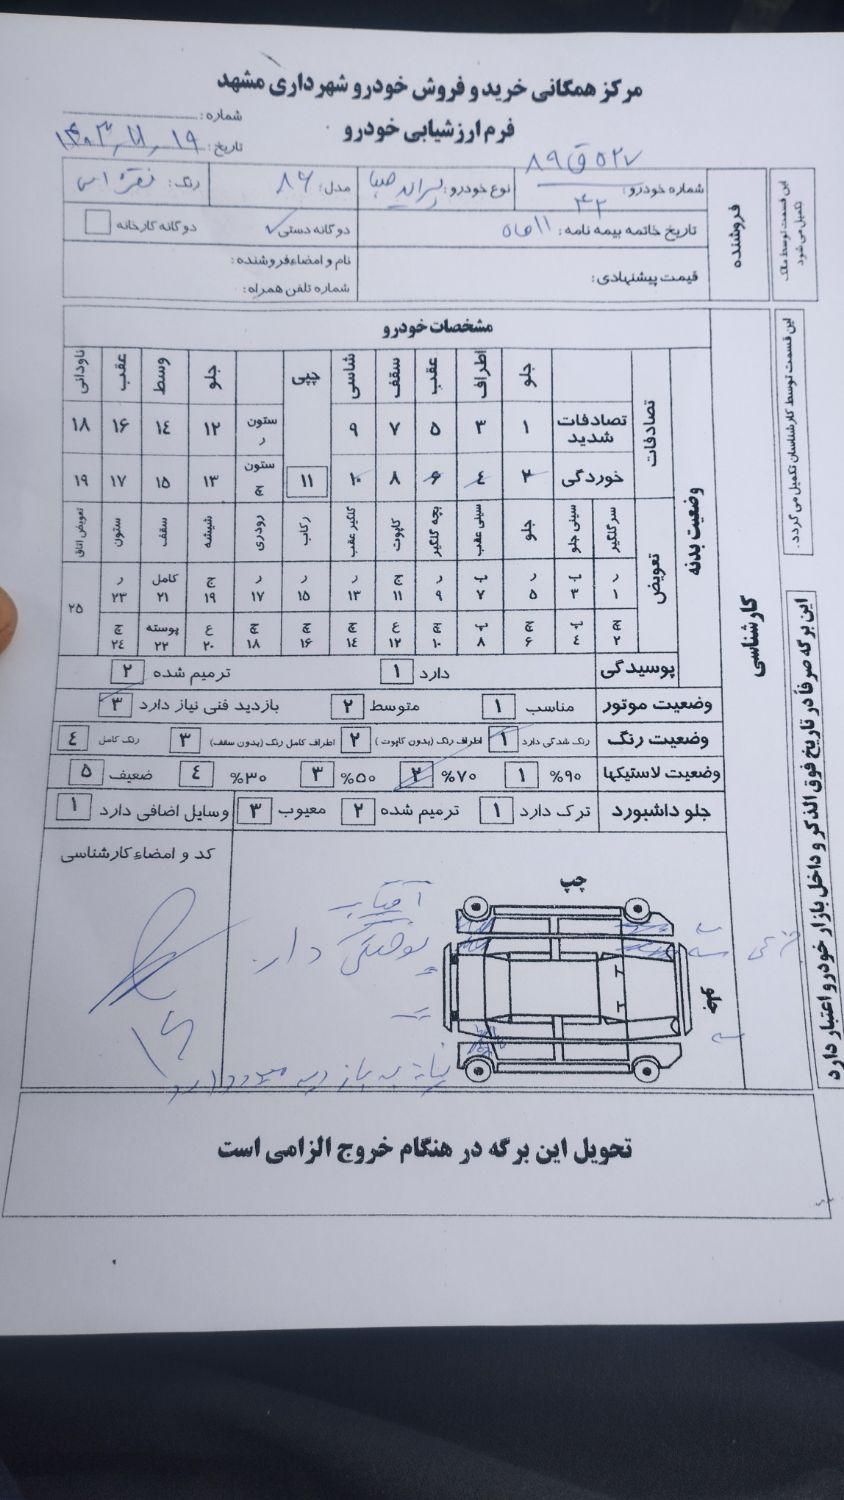 مرکز همگانی خرید و فروش خودرو شهرداری مشهد
فرم ارزشیابی خودرو
شماره:
تاریخ: ۱۴۰۳,۱۱,۱۹
این قسمت توسط مالک تکمیل می شود
فروشنده
شماره خودرو: ۸۹ ق ۵۲۷ ۴۲
نوع خودرو: پراید صبا
مدل: ۸۶
رنگ: نقره ای
تاریخ خاتمه بیمه نامه: ۱۱ ماه
دوگانه دستی ✓
دوگانه کارخانه
قیمت پیشنهادی:
نام و امضاء فروشنده:
شماره تلفن همراه:
این قسمت توسط کارشناسان تکمیل می گردد.
کارشناسی
مشخصات خودرو
وضعیت بدنه
تصادفات
جلو اطراف عقب سقف شاسی چپی جلو وسط عقب ناودانی
تصادفات شدید ۱ ۳ ۵ ۷ ۹ ستون ر ۱۲ ۱۴ ۱۶ ۱۸
خوردگی ۲ ۴ ۶ ۸ ۱۰ ۱۱ ستون چ ۱۳ ۱۵ ۱۷ ۱۹
تعویض
سرگلگیر سینی جلو جلو سینی عقب بچه گلگیر کاپوت گلگیر عقب رکاب رودری شیشه سقف ستون تعویض اتاق
ر ۱ پ ۳ ر ۵ پ ۷ ر ۹ چ ۱۱ ر ۱۳ ر ۱۵ ر ۱۷ ج ۱۹ کامل ۲۱ ر ۲۳ ۲۵
چ ۲ پ ۴ چ ۶ پ ۸ چ ۱۰ ع ۱۲ چ ۱۴ چ ۱۶ چ ۱۸ ع ۲۰ پوسته ۲۲ چ ۲۴
پوسیدگی دارد ۱ ترمیم شده ۲
وضعیت موتور مناسب ۱ متوسط ۲ بازدید فنی نیاز دارد ۳
وضعیت رنگ رنگ شدگی دارد ۱ اطراف رنگ (بدون کاپوت) ۲ اطراف کامل رنگ (بدون سقف) ۳ رنگ کامل ۴
وضعیت لاستیکها ۹۰% ۱ ۷۰% ۲ ۵۰% ۳ ۳۰% ۴ ضعیف ۵
جلو داشبورد ترک دارد ۱ ترمیم شده ۲ معیوب ۳ وسایل اضافی دارد ۱
کد و امضاء کارشناسی
چپ
دارد
نیاز به بازدید
تحویل این برگه در هنگام خروج الزامی است
این برگه صرفاً در تاریخ فوق الذکر و داخل بازار خودرو اعتبار دارد